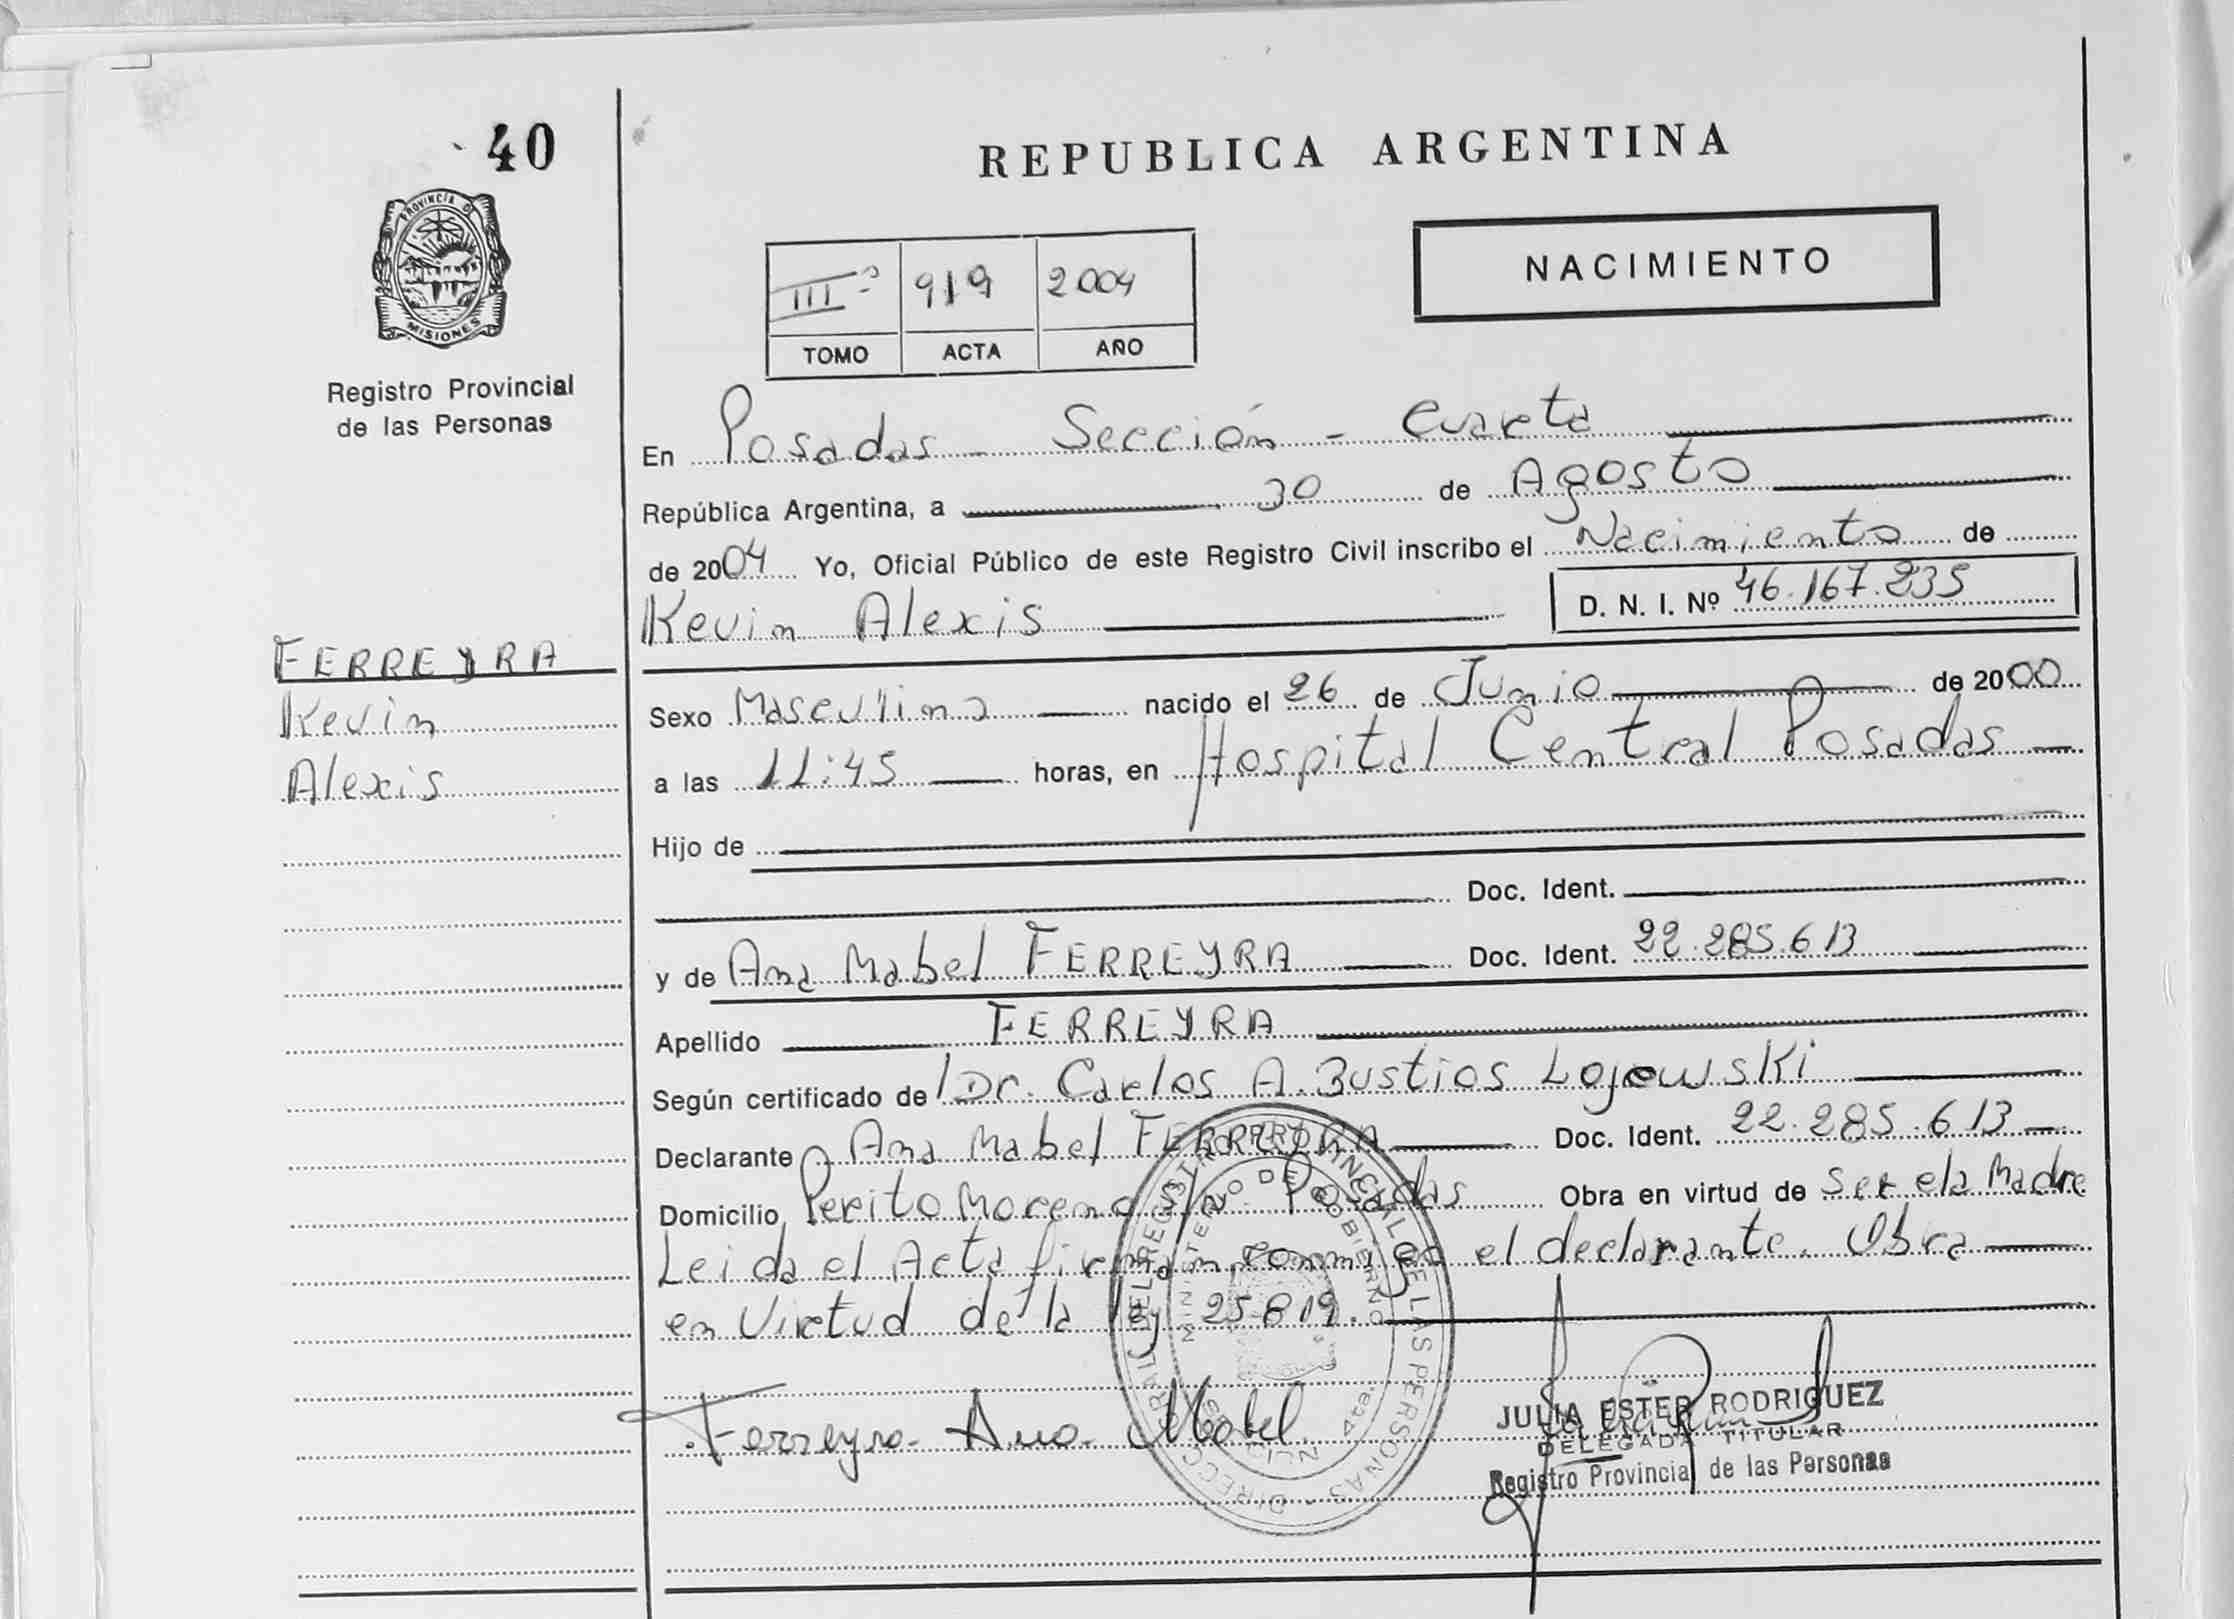 40
PROVINCIA DE
MISIONES
Registro Provincial
de las Personas
FERREYRA
Kevin
Alexis
REPUBLICA ARGENTINA
III 919 2004
TOMO ACTA AÑO
NACIMIENTO
En Posadas - Sección - Cuarta
República Argentina, a 30 de Agosto
de 2004 Yo, Oficial Público de este Registro Civil inscribo el Nacimiento de
Kevin Alexis D. N. I. Nº 46.167.235
Sexo Masculino nacido el 26 de Junio de 2000
a las 11:45 horas, en Hospital Central Posadas
Hijo de
Doc. Ident.
y de Ana Mabel FERREYRA Doc. Ident. 22.285.613
Apellido FERREYRA
Según certificado de Dr. Carlos A. Bustios Lojewski
Declarante Ana Mabel FERREYRA Doc. Ident. 22.285.613
Domicilio Perito Moreno Posadas Obra en virtud de ser ela Madre
Leida el Acta firman conmigo el declarante. Obra
en Virtud de la ley 25.819.
Ferreyra Ana Mabel
JULIA ESTER RODRIGUEZ
DELEGADA TITULAR
Registro Provincial de las Personas
DIRECC RAL DEL REGISTRO PROVINCIAL DE LAS PERSONAS
MINISTERIO DE GOBIERNO
4ta.